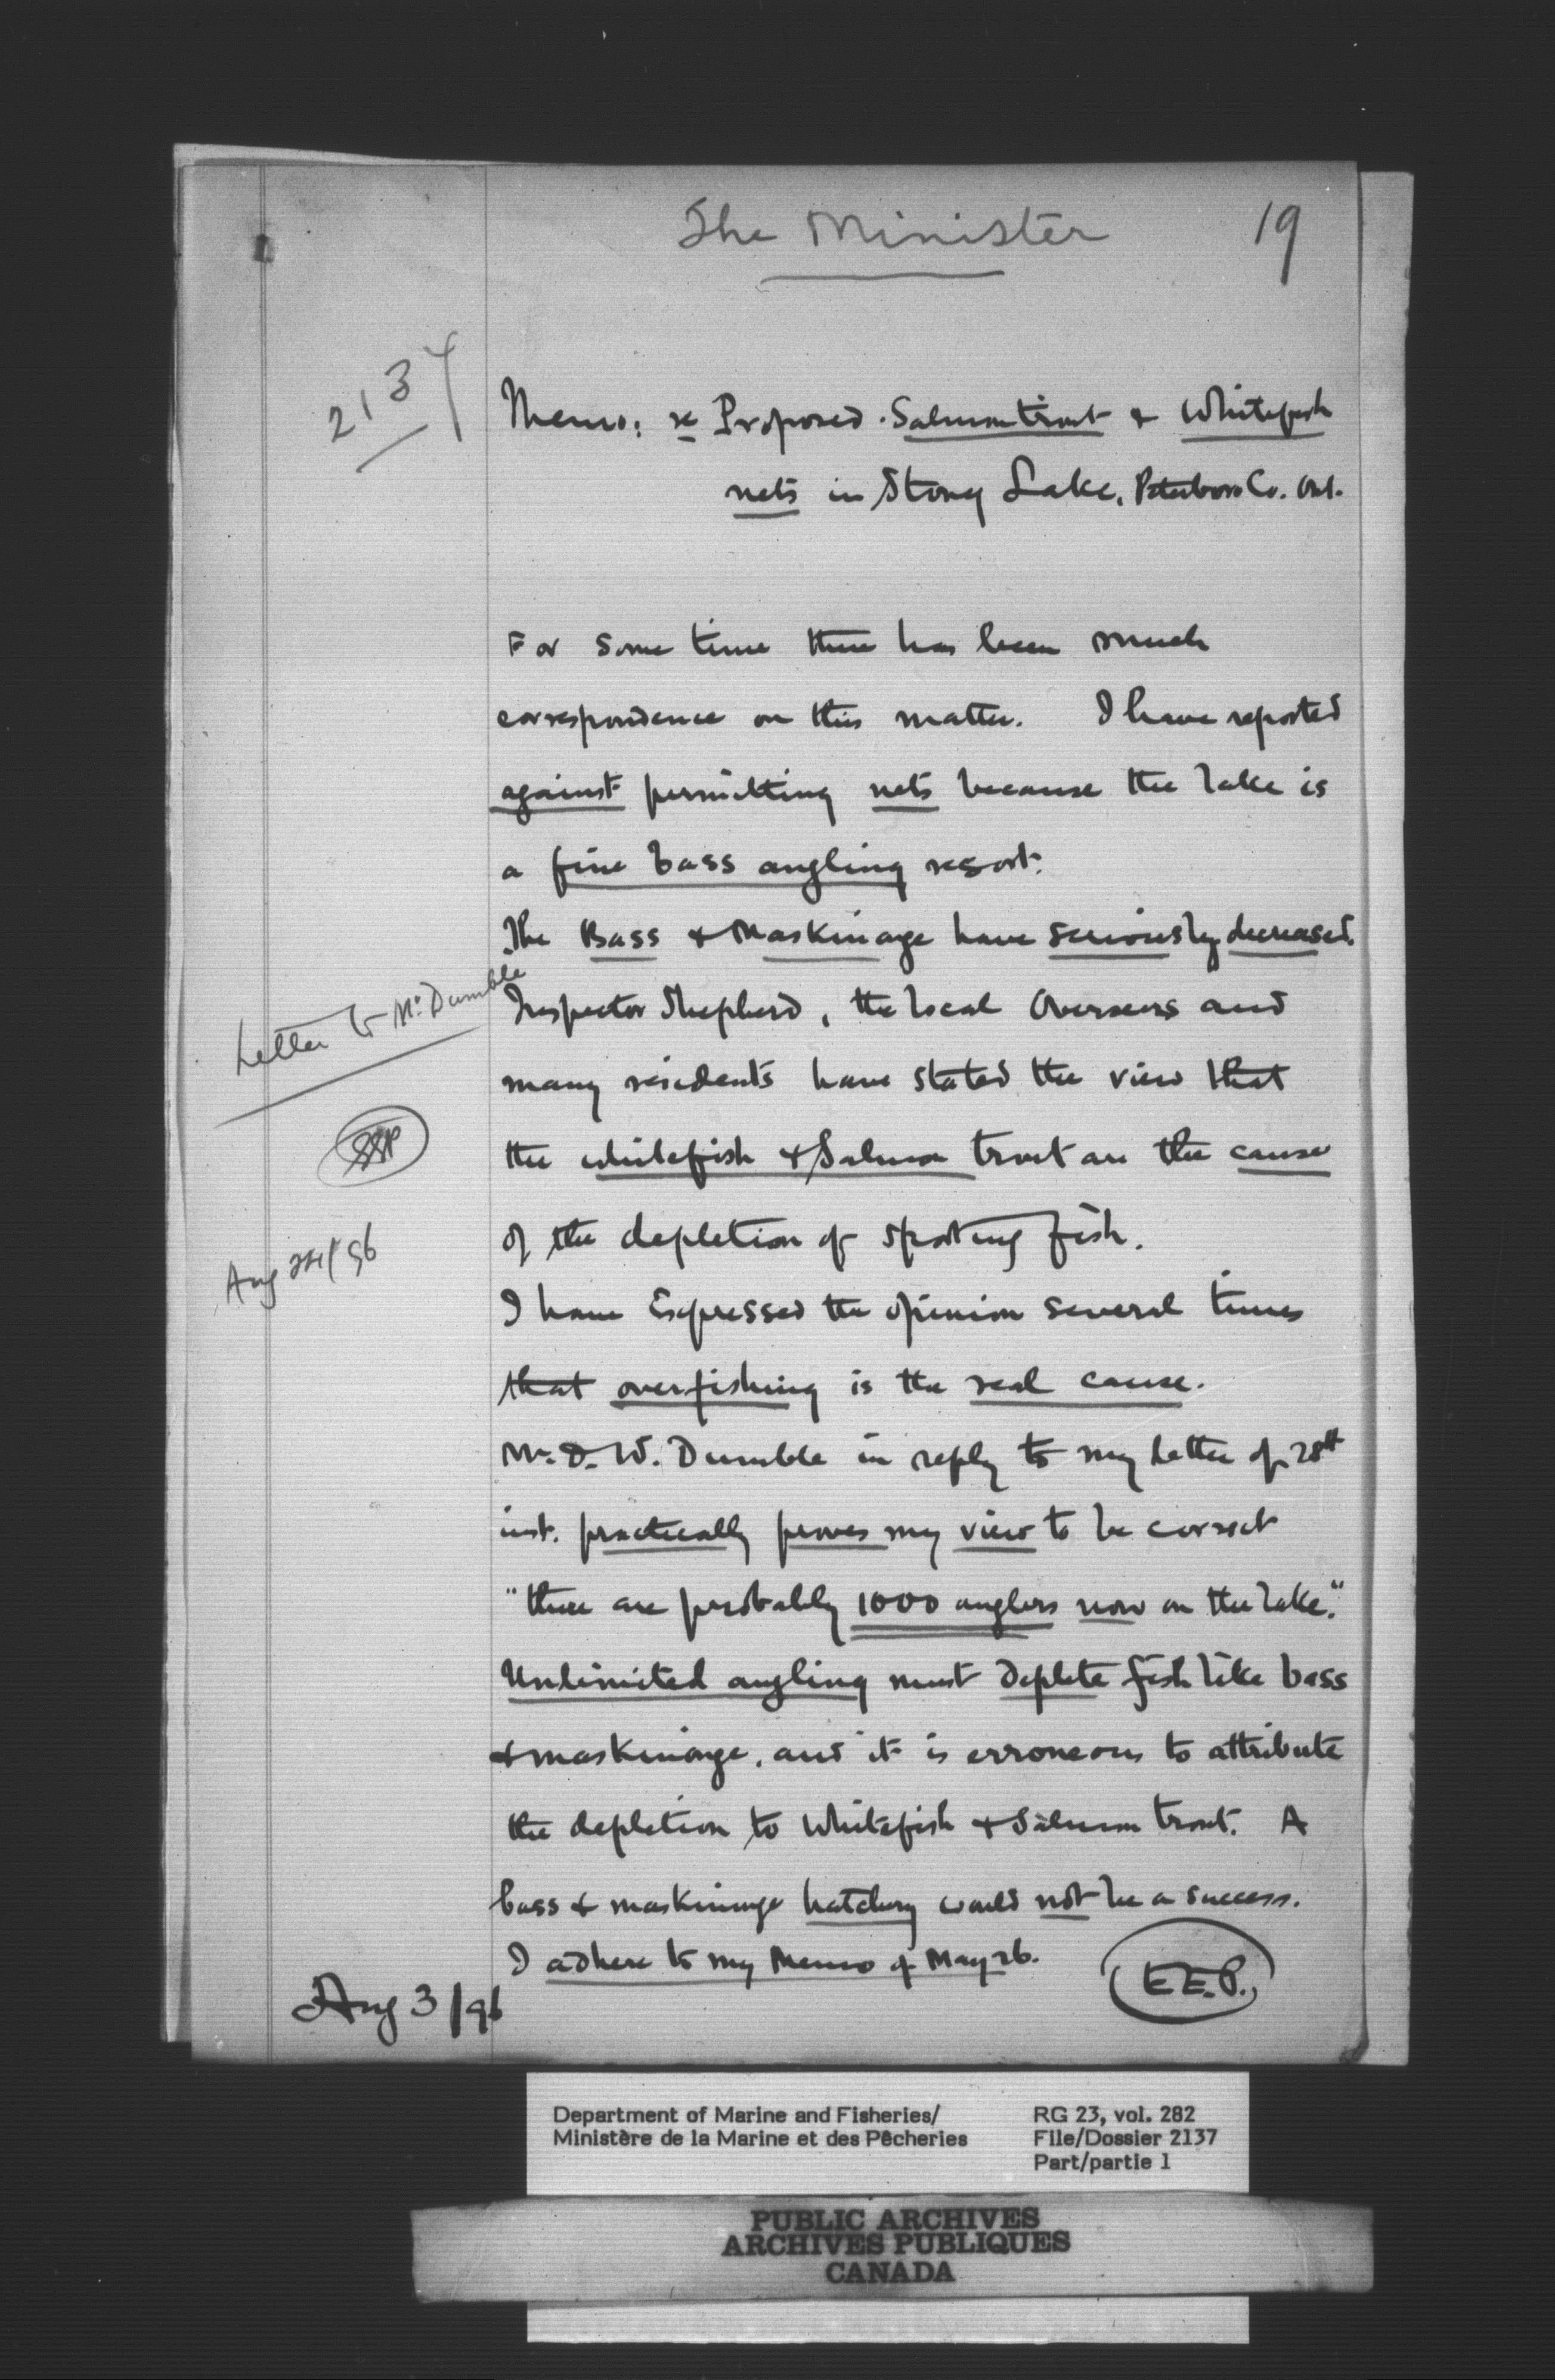 The Minister
19
2137
Memo: re Proposed Salmon trout & Whitefish
nets in Stony Lake, Peterboro Co. Ont.
For some time there has been much
correspondence on this matter. I have reported
against permitting nets because the lake is
a fine bass angling resort.
The Bass & Maskinage have seriously decreased.
Letter to Mr. Dumble
Inspector Shepherd, the local Overseers and
many residents have stated the view that
the whitefish & Salmon trout are the cause
of the depletion of sporting fish.
Aug 24/96
I have Expressed the opinion several times
that overfishing is the real cause.
Mr. D. W. Dumble in reply to my letter of 28th
inst. practically proves my view to be correct
"there are probably 1000 anglers now on the lake."
Unlimited angling must deplete fish like bass
& maskinonge, and it is erroneous to attribute
the depletion to Whitefish & Salmon trout. A
bass & maskinonge hatchery would not be a success.
I adhere to my Memo of May 26.
E.E.P.
Aug 3/96
Department of Marine and Fisheries/
Ministère de la Marine et des Pêcheries
RG 23, vol. 282
File/Dossier 2137
Part/partie 1
PUBLIC ARCHIVES
ARCHIVES PUBLIQUES
CANADA